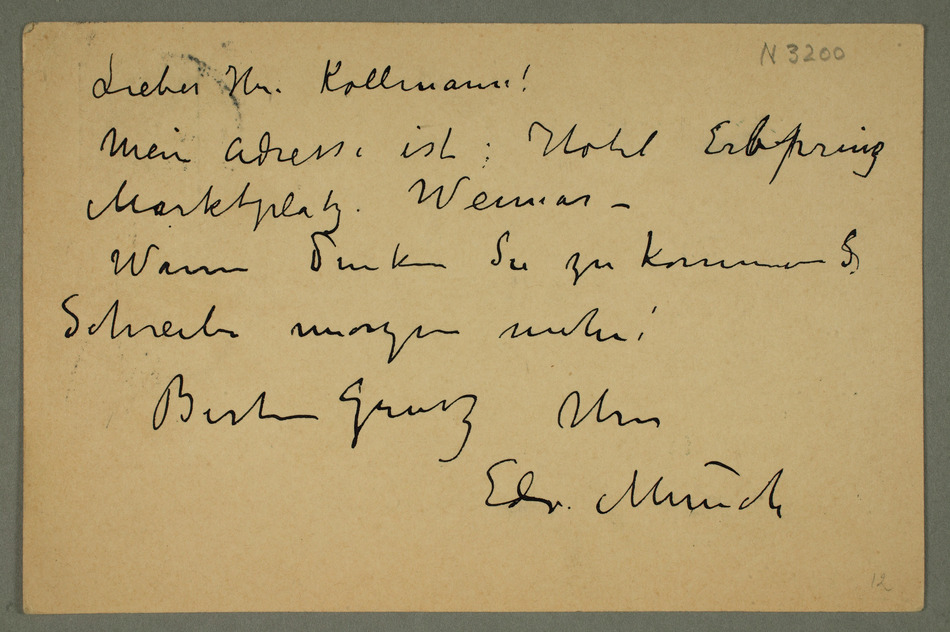 N 3200
Lieber Hr. Kollmann!
Mein Adresse ist: Hotel Erbprinz
Marktplatz. Weimar –
Wann denken Sie zu kommen?
Schreibe morgen mehr!
Besten Grusz Ihr
Edv. Munch
12